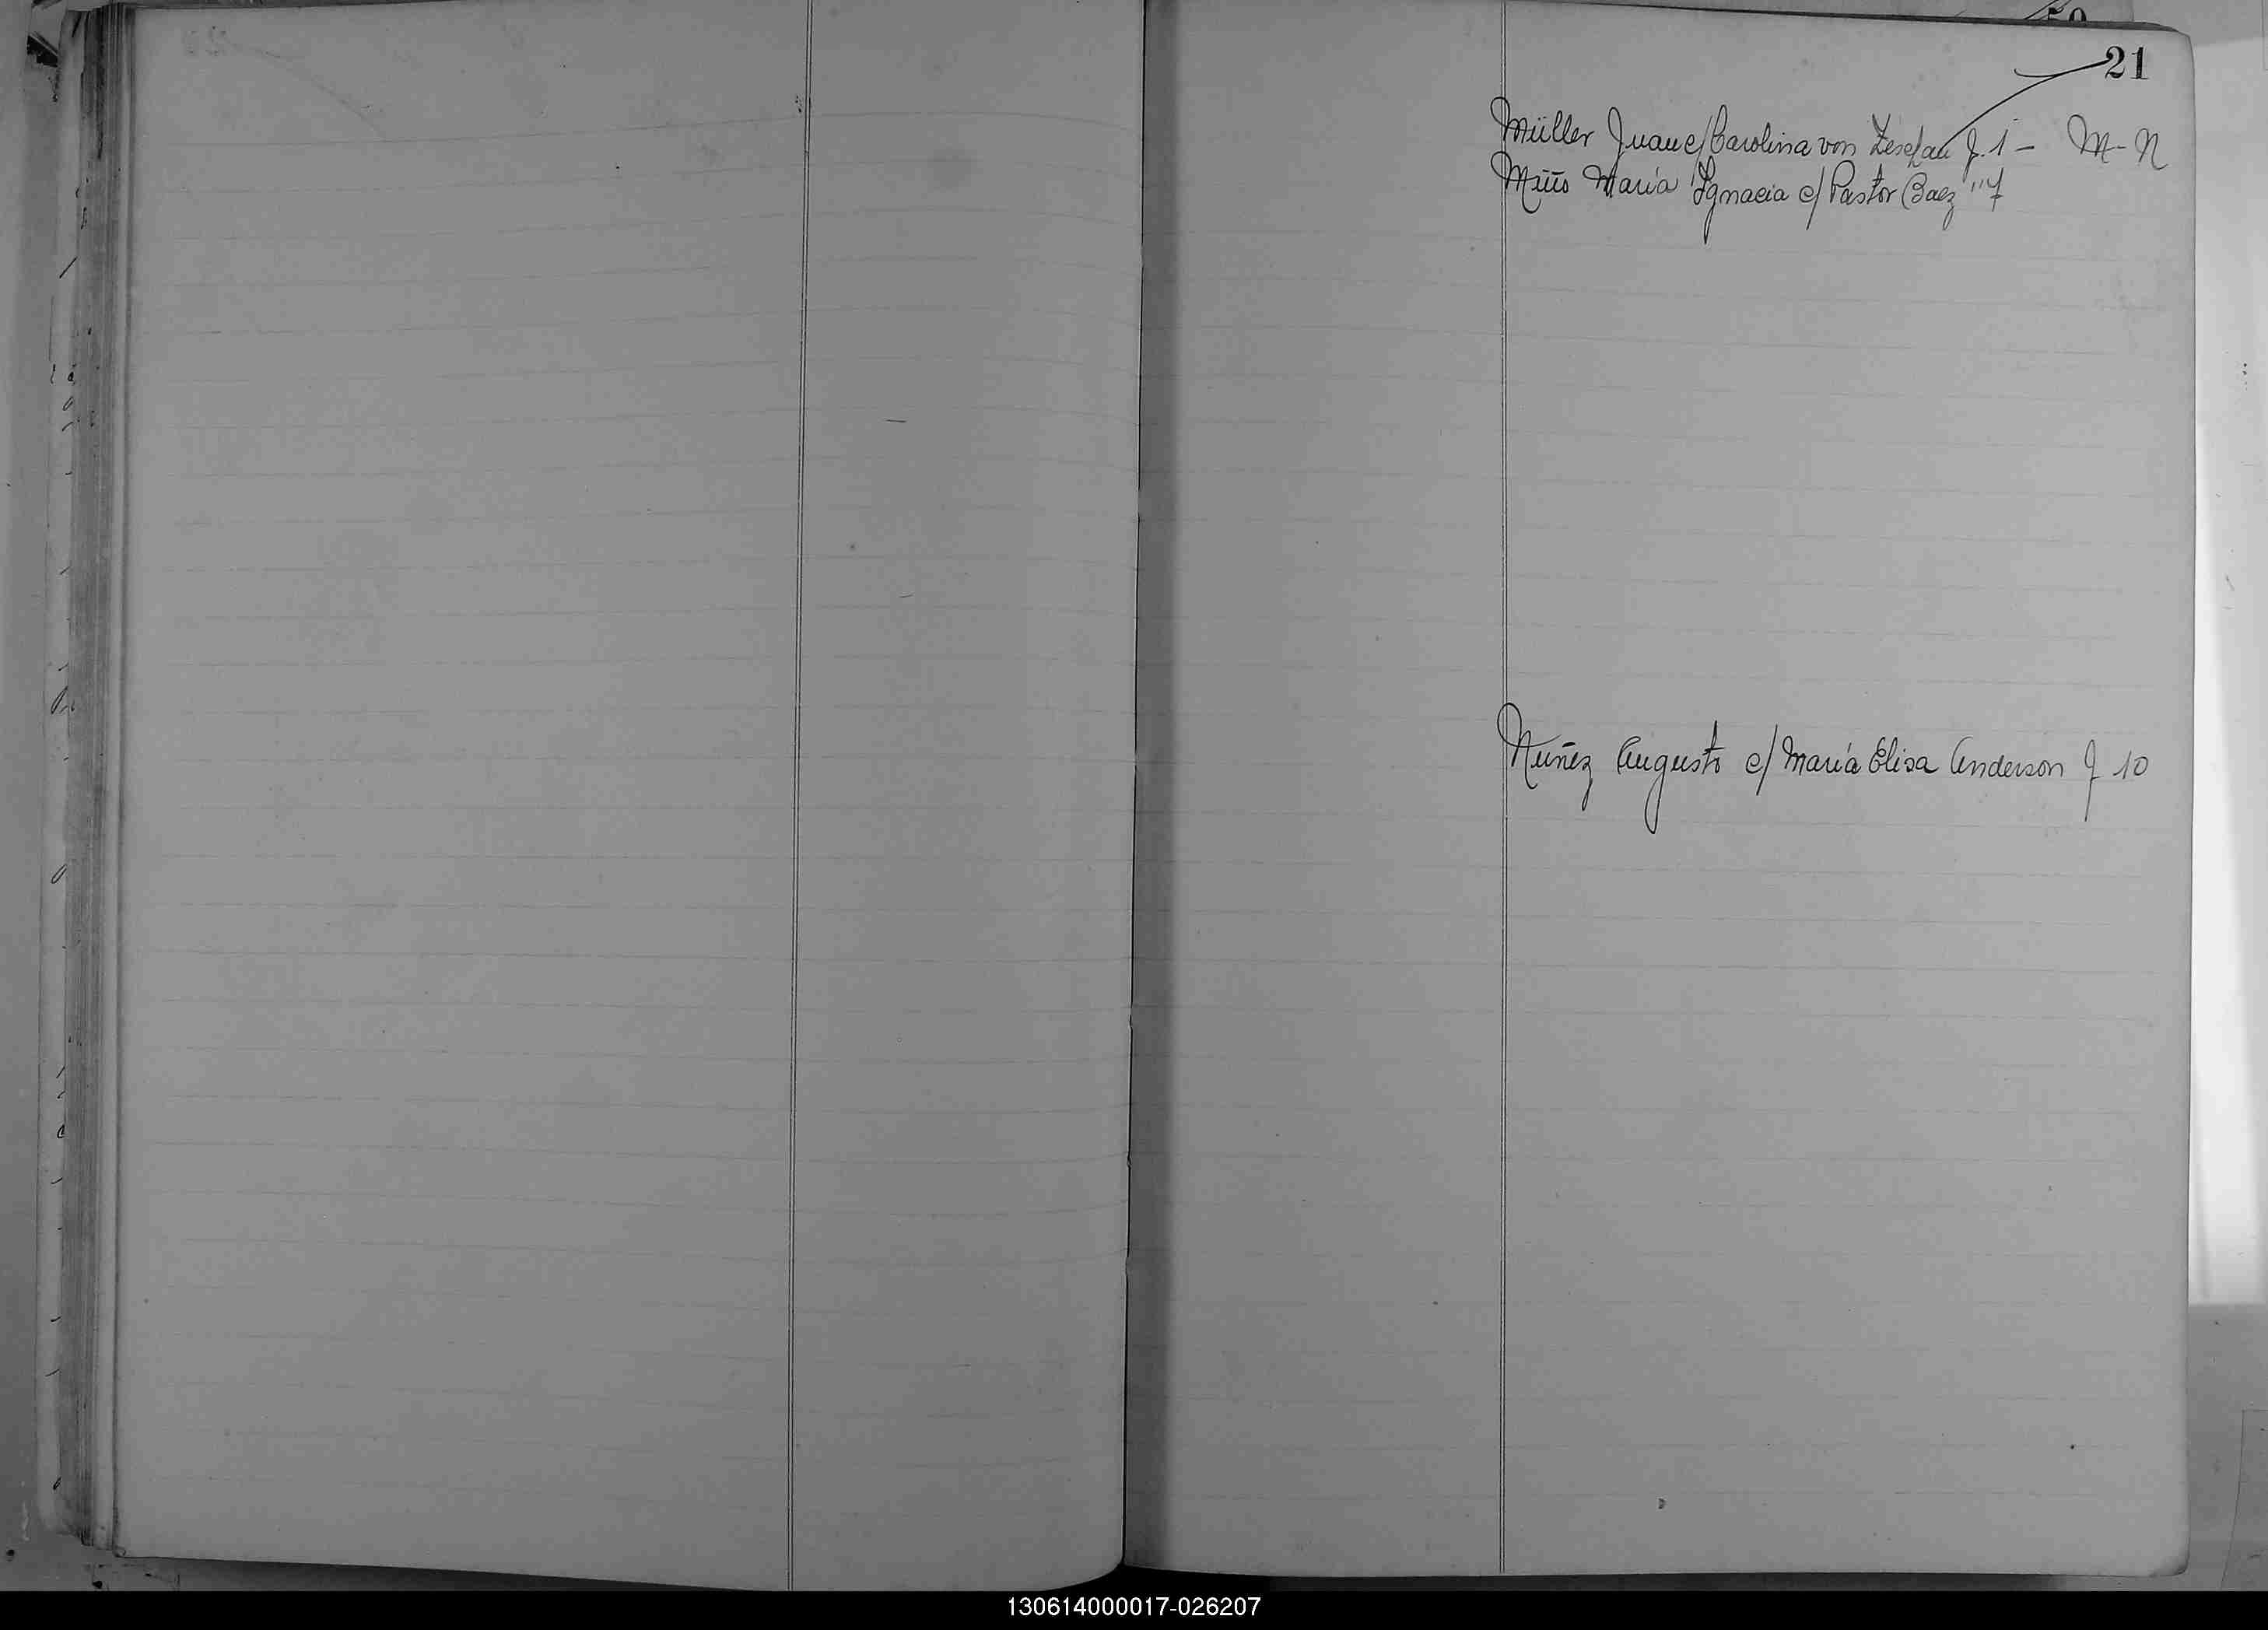 21
Müller Juan c/ Carolina von Zeschau f. 1 - M-N
María Ignacia c/ Pastor Baez " 7
Nuñez Augusto c/ María Elisa Anderson f 10
130614000017-026207